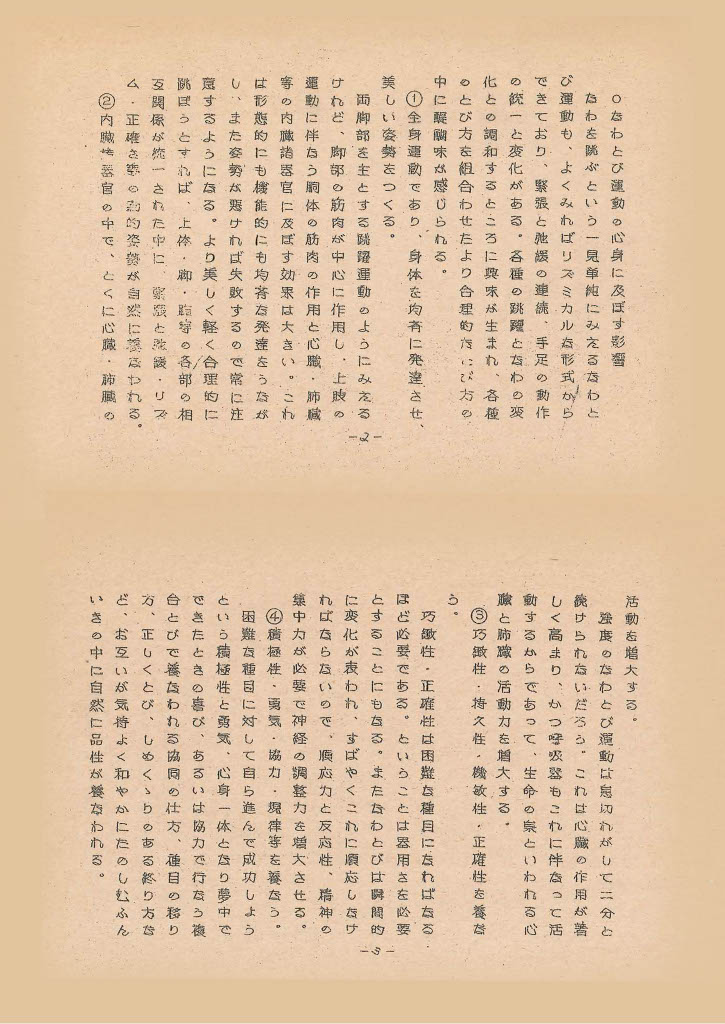 ○なわとび運動の心身に及ぼす影響
なわを跳ぶという一見単純にみえるなわと
び運動も、よくみればリズミカルな形式から
できており、緊張と弛緩の連続、手足の動作
の統一と変化がある。各種の跳躍となわの変
化との調和するところに興味が生まれ、各種
のとび方を組合わせたより合理的なとび方の
中に醍醐味が感じられる。
①全身運動であり、身体を均斉に発達させ、
美しい姿勢をつくる。
両脚部を主とする跳躍運動のようにみえる
けれど、脚部の筋肉が中心に作用し、上肢の
運動に伴なう胴体の筋肉の作用と心臓・肺臓
等の内臓諸器官に及ぼす効果は大きい。これ
は形態的にも機能的にも均斉な発達をうなが
し、また姿勢が悪ければ失敗するので常に注
意するようになる。より美しく軽く合理的に
跳ぼうとすれば、上体・脚・腕等の各部の相
互関係が統一された中に、緊張と弛緩・リズ
ム・正確さ等の動的姿勢が自然に養なわれる。
②内臓諸器官の中で、とくに心臓・肺臓の
-2-
活動を増大する。
強度のなわとび運動は息切れがして二分と
続けられないだろう。これは心臓の作用が著
しく高まり、かつ呼吸器もこれに伴なって活
動するからであって、生命の泉といわれる心
臓と肺臓の活動力を増大する。
③巧緻性・持久性・機敏性・正確性を養な
う。
巧緻性・正確性は困難な種目になればなる
ほど必要である。ということは器用さを必要
とすることにもなる。またなわとびは瞬間的
に変化が表われ、すばやくこれに順応しなけ
ればならないので、順応力と反応性、精神の
集中力が必要で神経の調整力を増大させる。
④積極性・勇気・協力・規律等を養なう。
困難な種目に対して自ら進んで成功しよう
という積極性と勇気、心身一体となり夢中で
できたときの喜び、あるいは協力で行なう複
合とびで養なわれる協同の仕方、種目の移り
方、正しくとび、しめくゝりのある終り方な
ど、お互いが気持よく和やかにたのしむふん
いきの中に自然に品性が養なわれる。
-3-